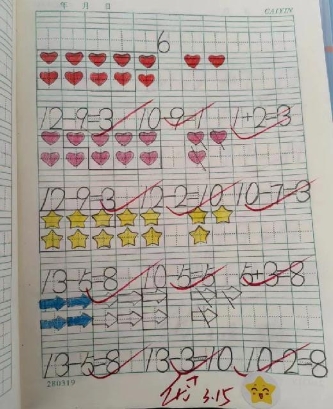 年 月 日 CAIXIN
6
12-9=3 10-9=1 1+2=3
12-9=3 12-2=10 10-7=3
13-5=8 10-5=5 5+3=8
13-5=8 13-3=10 10-2=8
280319 3.15